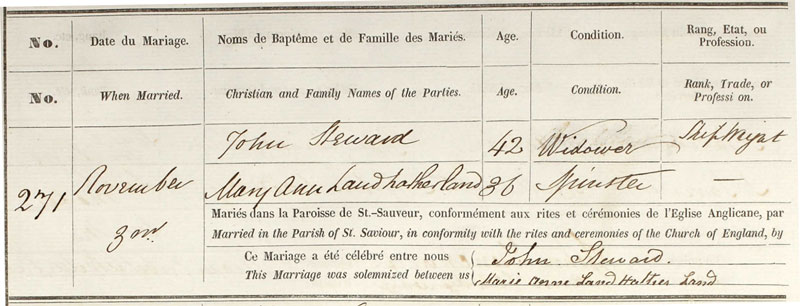 No. Date du Mariage. Noms de Baptême et de Famille des Mariés. Age. Condition. Rang, Etat, ou Profession.
No. When Married. Christian and Family Names of the Parties. Age. Condition. Rank, Trade, or Professi on.
John Steward 42 Widower ShipWright
271 November 3rd Mary Ann Landhatherland 36 Spinster —
Mariés dans la Paroisse de St.-Sauveur, conformément aux rites et cérémonies de l'Eglise Anglicane, par
Married in the Parish of St. Saviour, in conformity with the rites and ceremonies of the Church of England, by
Ce Mariage a été célébré entre nous John Steward.
This Marriage was solemnized between us Marie Anne Land Hather Land